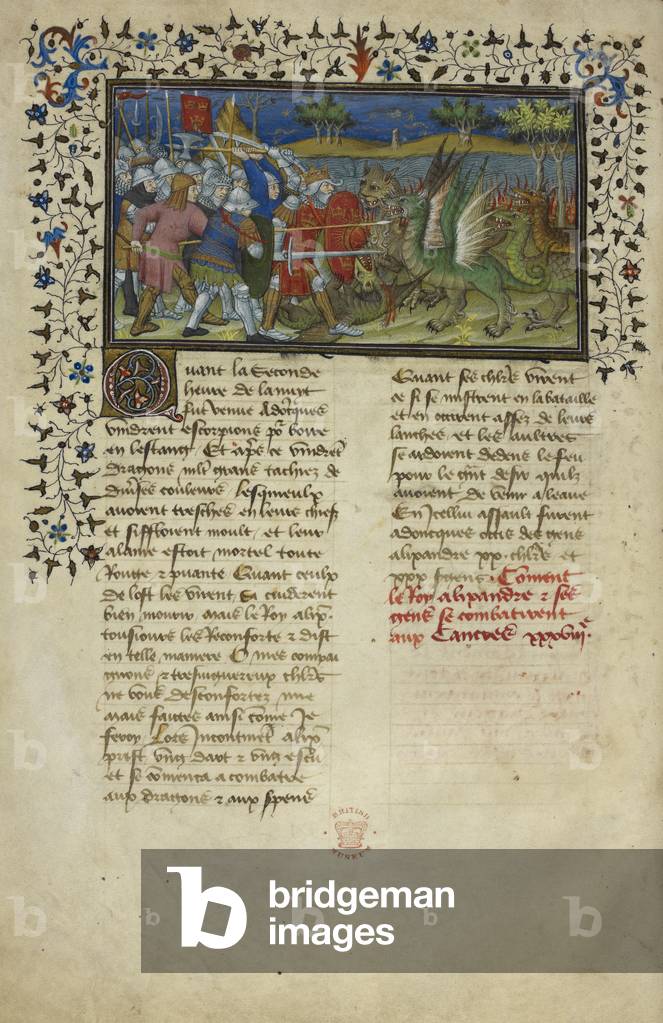 Quant la seconde
heure de la nuyt
fut venue adocques
vindrent escorpions po᷑ boire
en lestang. Et ap̃s ce vindrẽt
dragons ml̃t grans tachiez de
diũses couleurs lesquieulx
avoient cresches en leurs chiefz
et siffloient moult, et leur
alaine estoit mortel toute
Rouge ⁊ puante Quant ceulx
de lost les virent, Si cuiderent
bien mourir mais le Roy alix̃.
tousiours les Reconforte ⁊ dist
en telle maniere O mes compai
gnons ⁊ chl̃rs
ne vous desconfortez mie
mais faictes ainsi cõme Je
feroy. Lors Incontinẽt alix̃
prist vng dart ⁊ vng escu
et se cõmenca a combatre
aux dragons ⁊ aux serpens
Quant ses chl̃rs virent
ce si se mistrent en la bataille
et en occirent assez de leurs
lanches et les aultres
se ardoient dedens le feu
pour le gñt desir quilz
avoient de venir a leaue
En Icellui assault furent
adoncques occis des gens
alixandre xx. chl̃rs et
xxx sgens. Cõment
le Roy alixandre ⁊ ses
gens se combatirent
aux Cancres xxxviijᵉ.
BRITISH
MUSEUM
b bridgeman
images